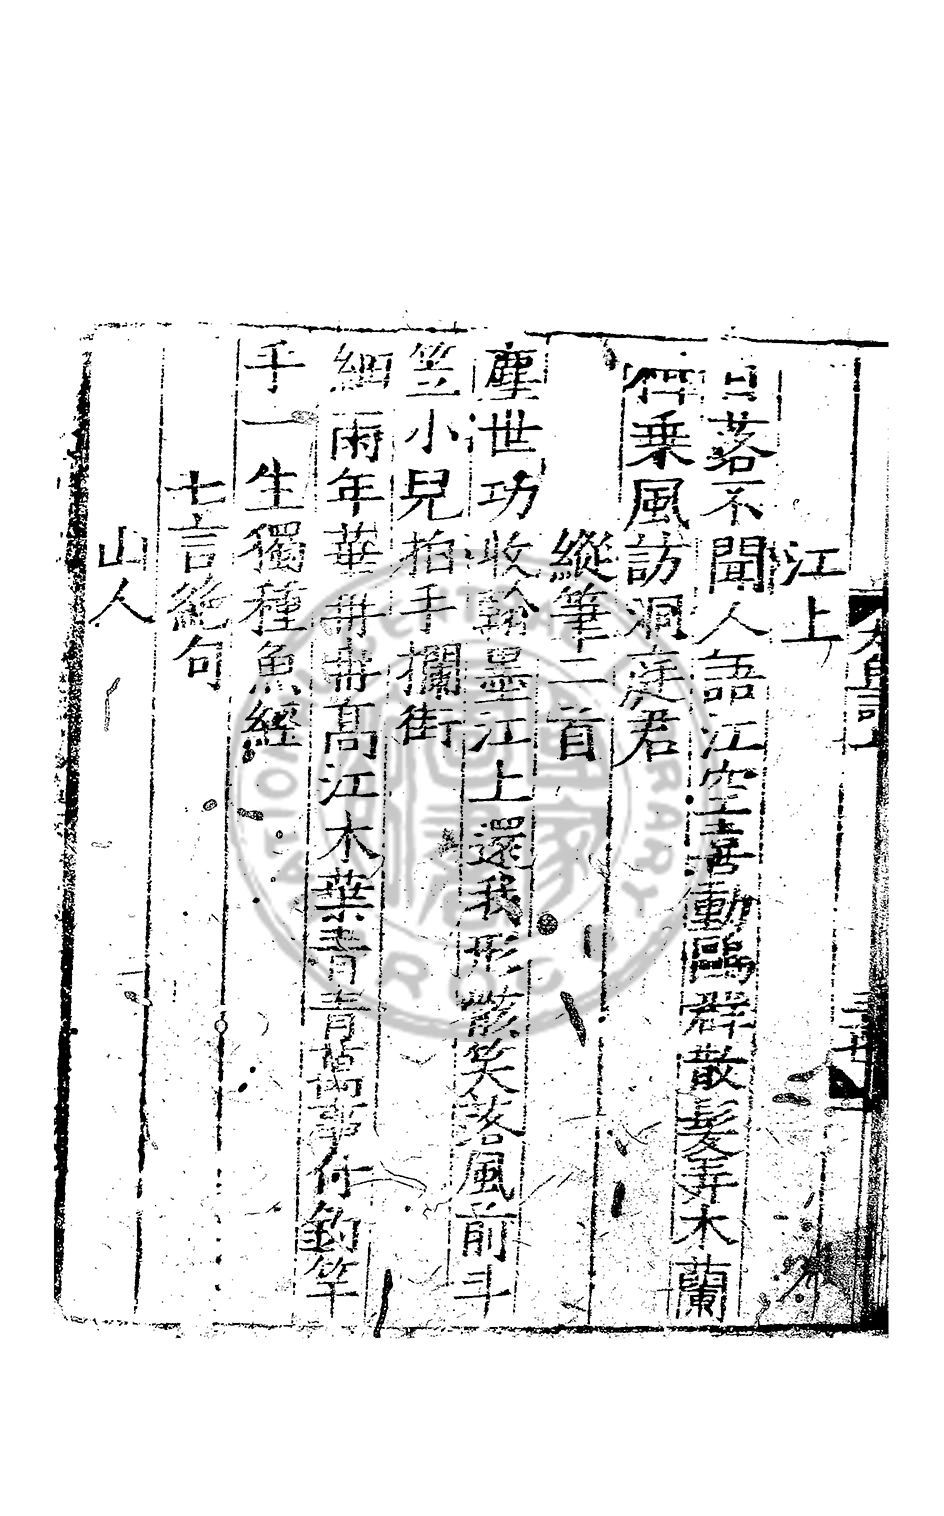 江上
日落不聞人語江空喜動鷗群散髮弄木蘭
枻乘風訪洞庭君
縱筆二首
塵世功收翰墨江上還我形骸笑落風前斗
笠小兒拍手攔街
細雨年華冊冊高江木葉青青萬事付釣竿
手一生獨種魚經
七言絕句
山人